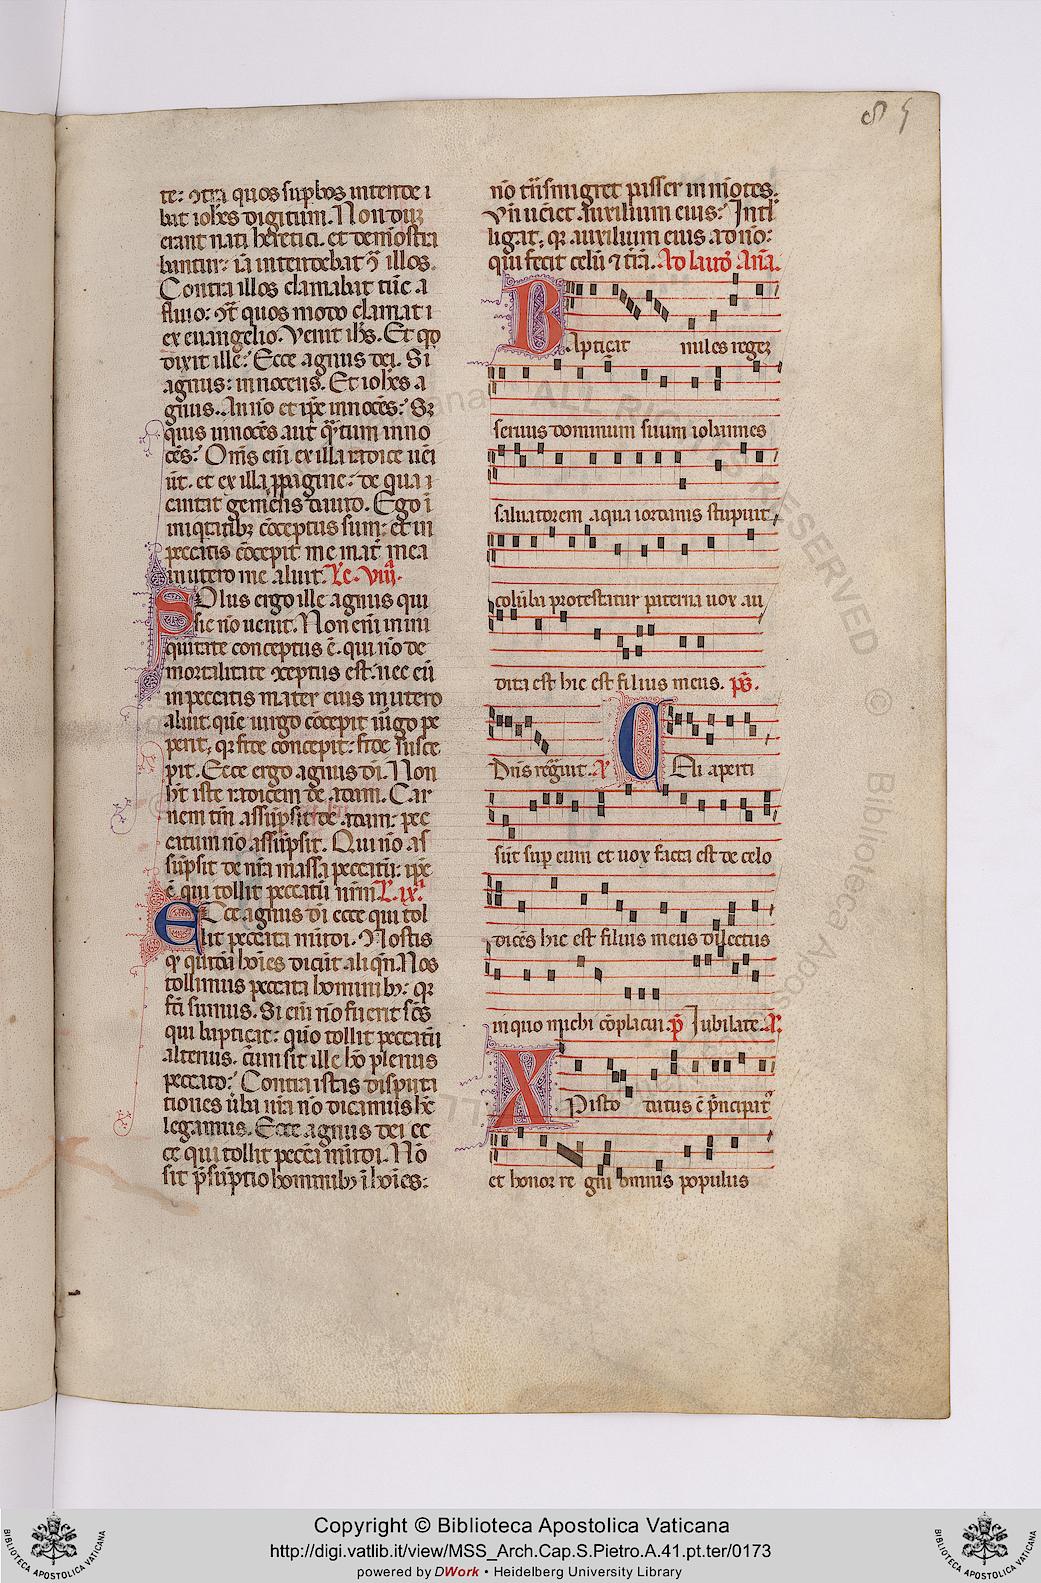 85
te: ɔtra quos supbos intende i
bat ioh̄es digitum. Non duz
erant nati heretici. et demōstra
bantur: iā intendebat ɔ̄ illos.
Contra illos clamabat tūc a
fluuio: ɔt̄ quos modo clamat i
ex euangelio. Venit ih̄s. Et qd
dixit ille: Ecce agnus dei. Si
agnus: innocens. Et ioh̄es a
gnus. An nō et ip̄e innocēs: Sz
quis innocēs aut qͣtum inno
cēs: Om̄s eīn ex illa radice ueī
ūt. et ex illa ꝓpagine: de qua
cantat gemens dauid. Ego ī
iniqtatibz cōceptus sum: et in
peccatis cōcepit me mat̄ mea
in utero me aluit. Lc. viij.
Solus ergo ille agnus qui
sic nō uenit. Non eīn in ini
quitate conceptus ē. qui nō de
mortalitate ɔceptus est. nec eū
in peccatis mater eius in utero
aluit. quē uirgo cōcepit uīgo pe
perit, qz fide concepit: fide susce
pit. Ecce ergo agnus dī. Non
h̄t iste radicem de adam. Car
nem tm̄ assūpsit de adam: pec
catum nō assūpsit. Qui nō as
sūpsit de nr̄a massa peccatū: ip̄e
ē qui tollit peccatū nr̄m L. ixͣ
Ecce agnus dī ecce qui tol
lit peccata mūdi. Nostis
qz quidā hoīes dicūt aliqn̄. Nos
tollimus peccata hominibz: qz
sc̄i sumus. Si eīn nō fuerit sc̄s
qui baptiçat: quō tollit peccatū
alterius. cum sit ille hō plenus
peccato: Contra istas disputa
tiones ūba nr̄a nō dicamus hͨ
legamus. Ecce agnus dei ec
ce qui tollit peccā mūdi. Nō
sit p̄sūptio hominibz ī hoīes:
nō trāsmigret passer in mōtes.
Vn̄ uēiet auxilium eius: Intl̄
ligat, qz auxilium eius a dnō:
qui fecit celū ⁊ t̄rā. Ad laud̄ Anā.
Bapticat miles regez
seruus dominum suum iohannes
saluatorem aqua iordanis stupuit
colūba protestatur paterna uox au
dita est hic est filius meus. pˢ.
Dn̄s regͣuit. A Celi aperti
sūt sup eum et uox facta est de celo
dicēs hic est filius meus dilectus
in quo michi cōplacui. p̄ Iubilate. A
Xpisto datus ē p̄ncipatꝰ
et honor re gni omnis populus
Copyright © Biblioteca Apostolica Vaticana
http://digi.vatlib.it/view/MSS_Arch.Cap.S.Pietro.A.41.pt.ter/0173
powered by DWork • Heidelberg University Library
BIBLIOTECA APOSTOLICA VATICANA
BIBLIOTECA APOSTOLICA VATICANA